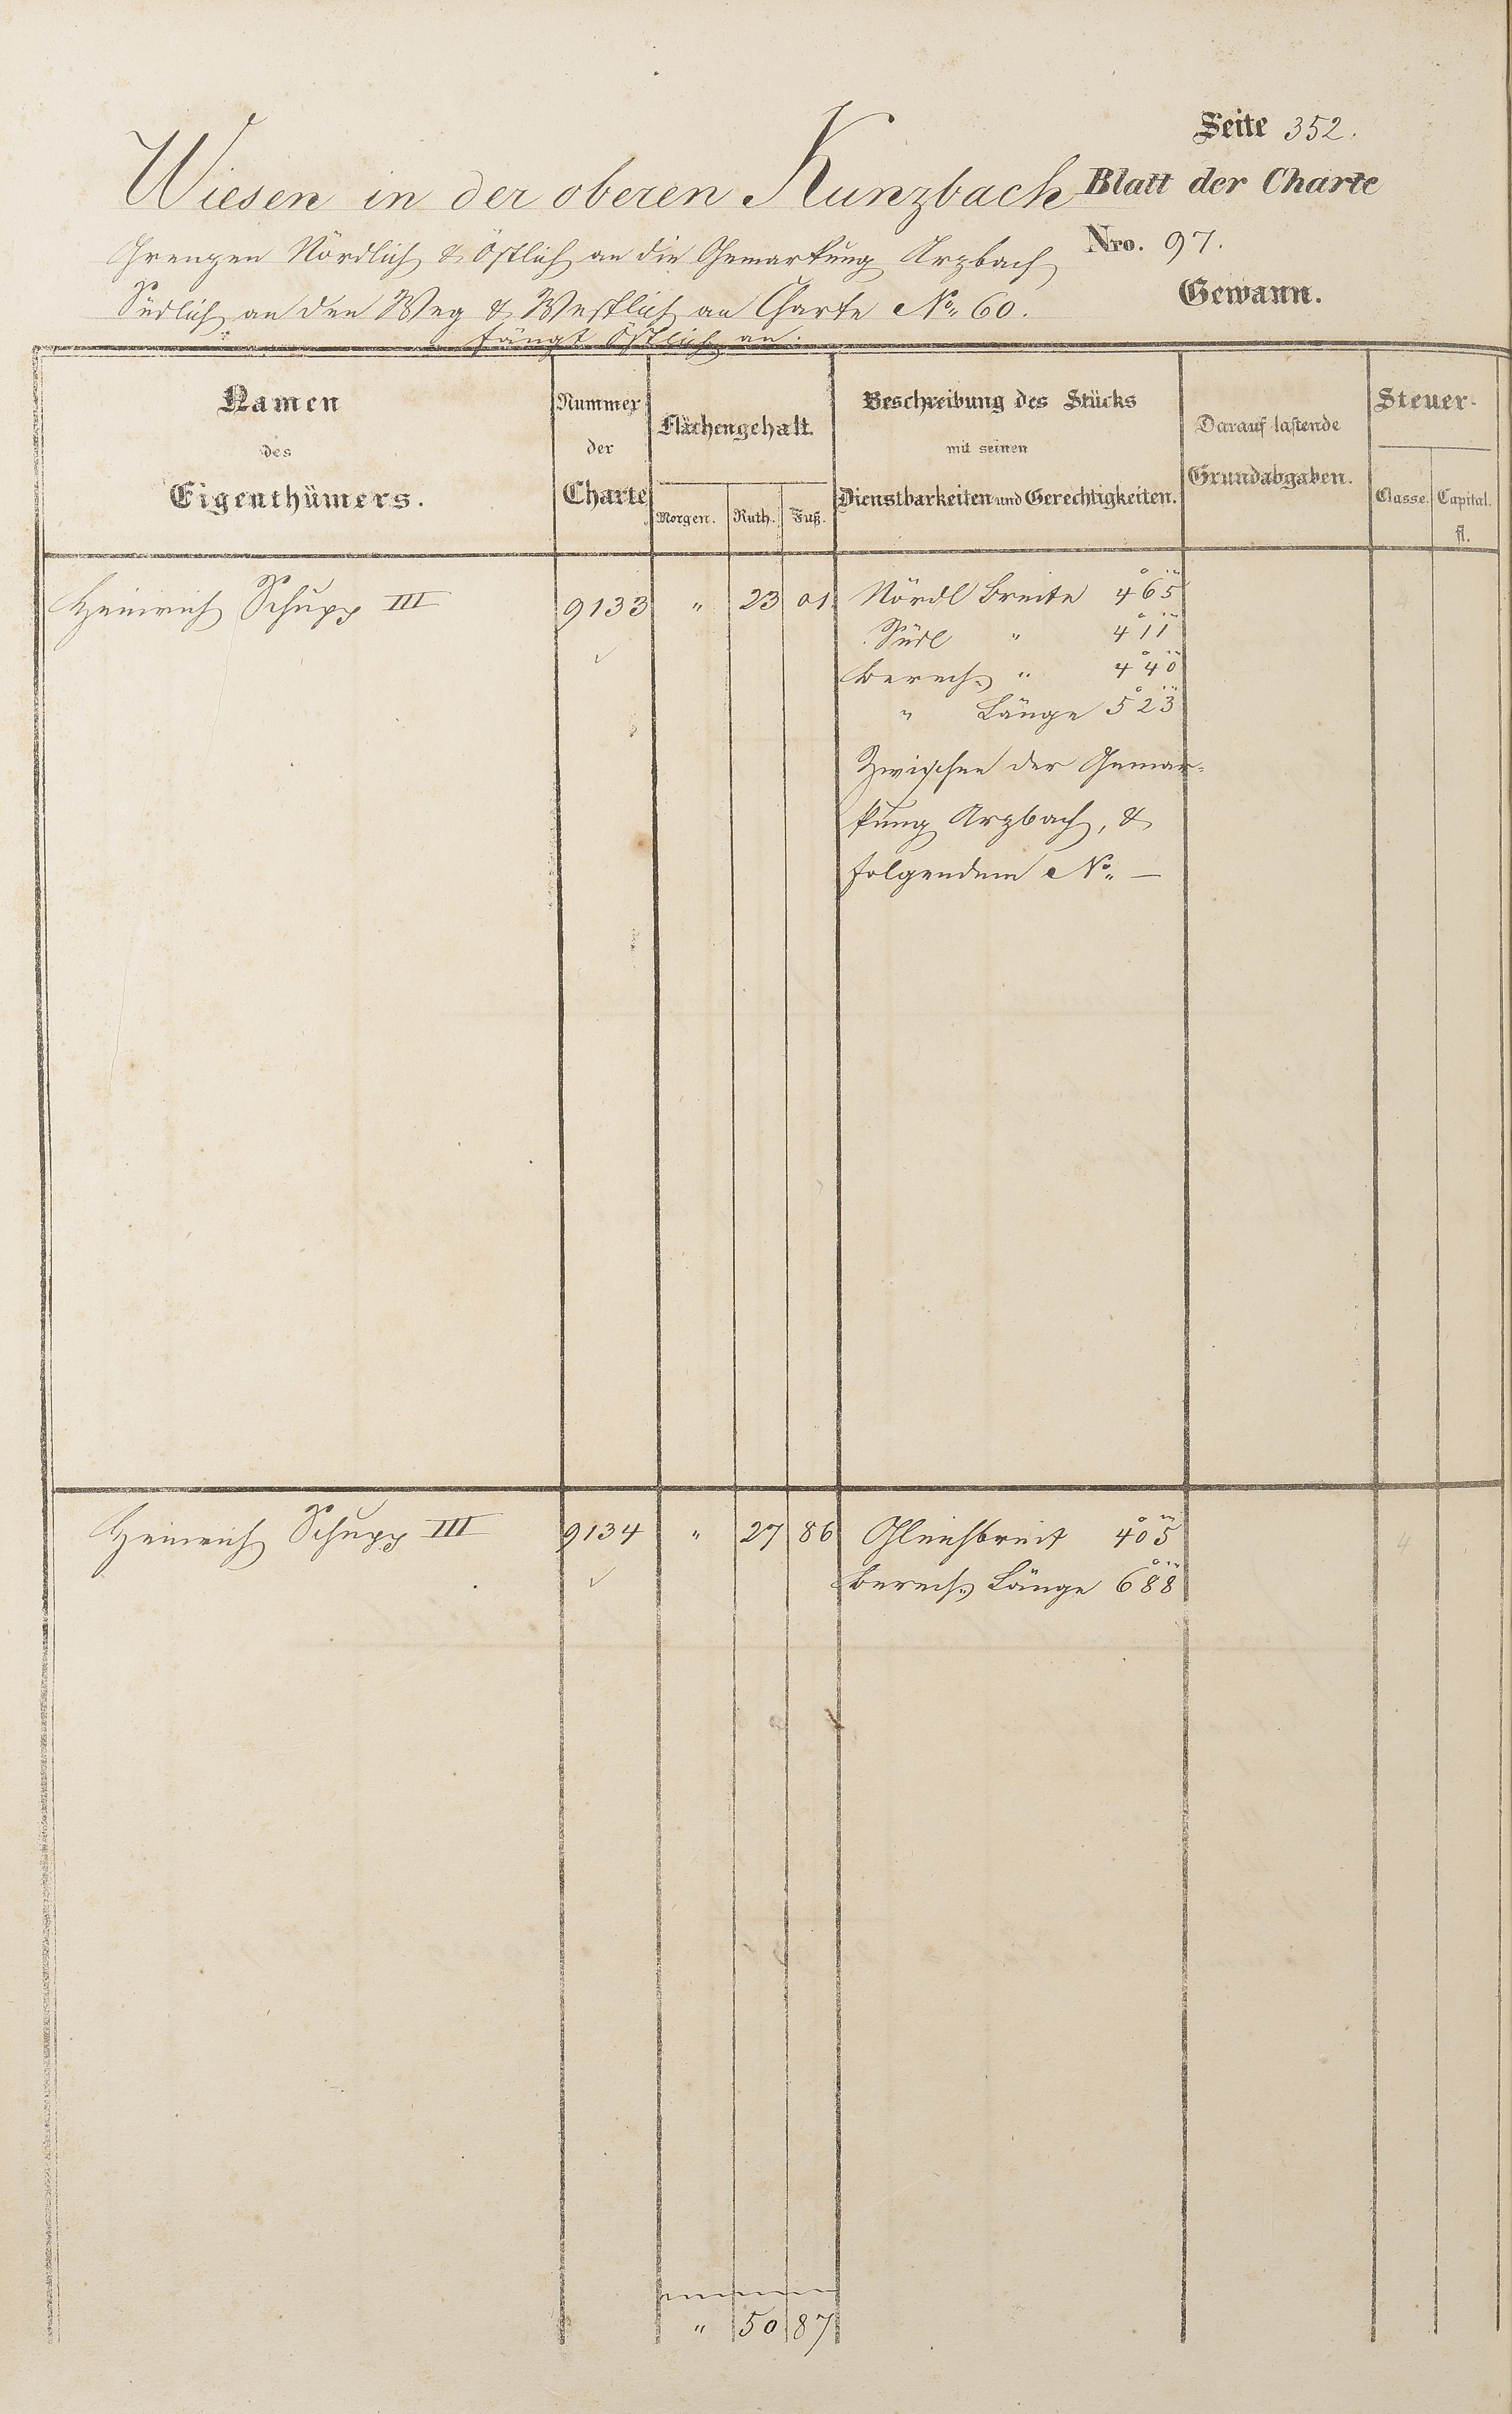 Seite 352.
Wiesen in der oberen Kunzbach Blatt der Charte
Grenzen Nördlich & Östlich an die Gemarkung Arzbach Nro. 97.
Südlich an den Weg & Westlich an Charte No. 60. Gewann.
fängt Östlich an.
Namen des Eigenthümers.
Nummer der Charte
Flächengehalt.
Morgen. Ruth. Fuß.
Beschreibung des Stücks
mit seinen
Dienstbarkeiten und Gerechtigkeiten.
Darauf lastende
Grundabgaben.
Steuer-
Classe. Capital.
fl.
Heinrich Schupp III 9133 " 23 01 Nördl Breite 4° 6' 5"
Südl " 4° 1' 1"
berech. " 4° 4' 0"
" Länge 5° 2' 3"
Zwischen der Gemar-
kung Arzbach, &
folgendem No. —
4
Heinrich Schupp III 9134 " 27 86 Gleichbreit 4° 0' 5" 4
berech. Länge 6° 8' 8"
" 50 87